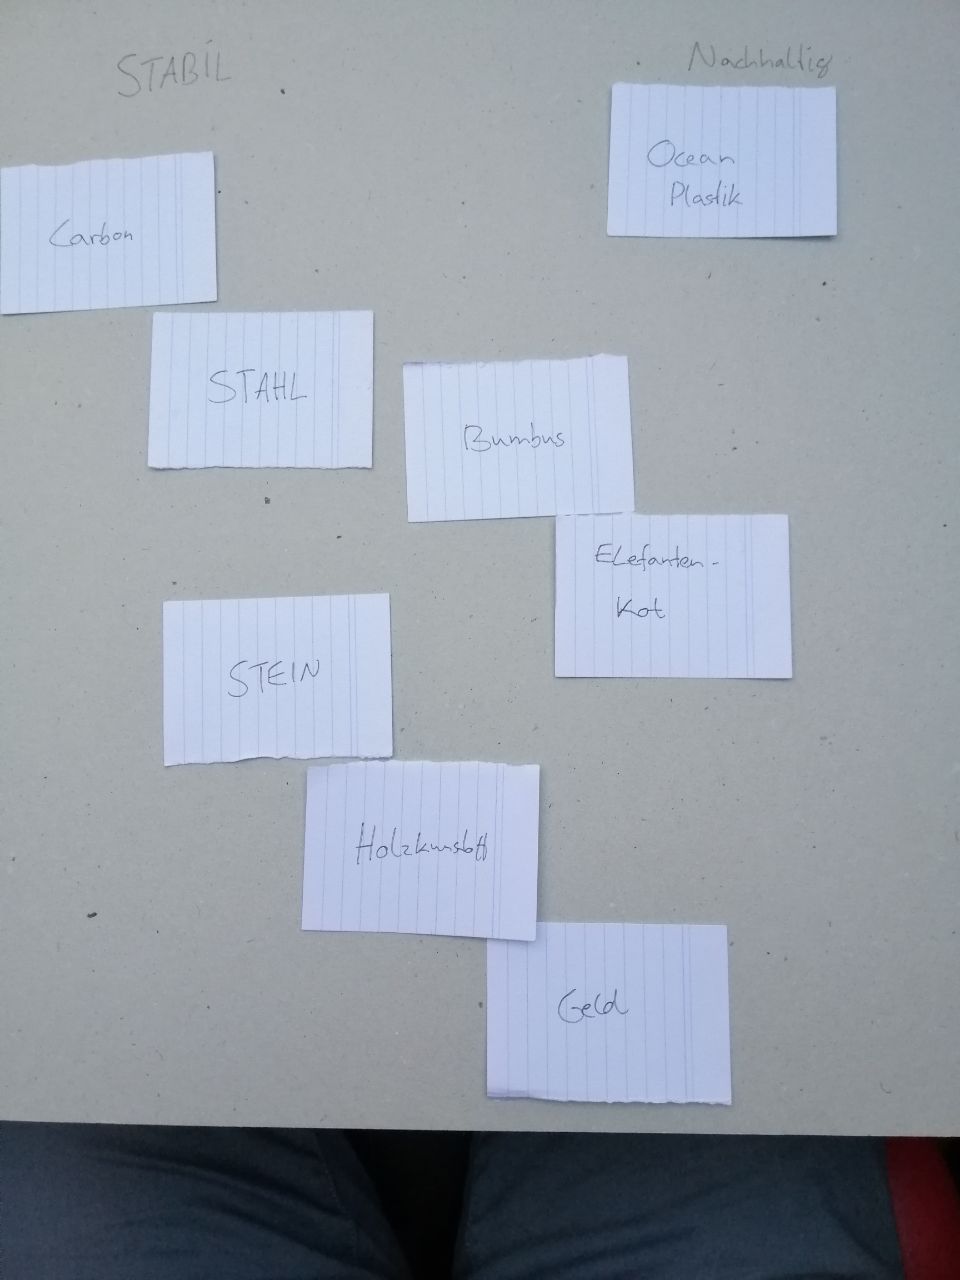 STABIL
Nachhaltig
Ocean
Plastik
Carbon
STAHL
Bumbus
Elefanten-
Kot
STEIN
Holzkunstoff
Geld